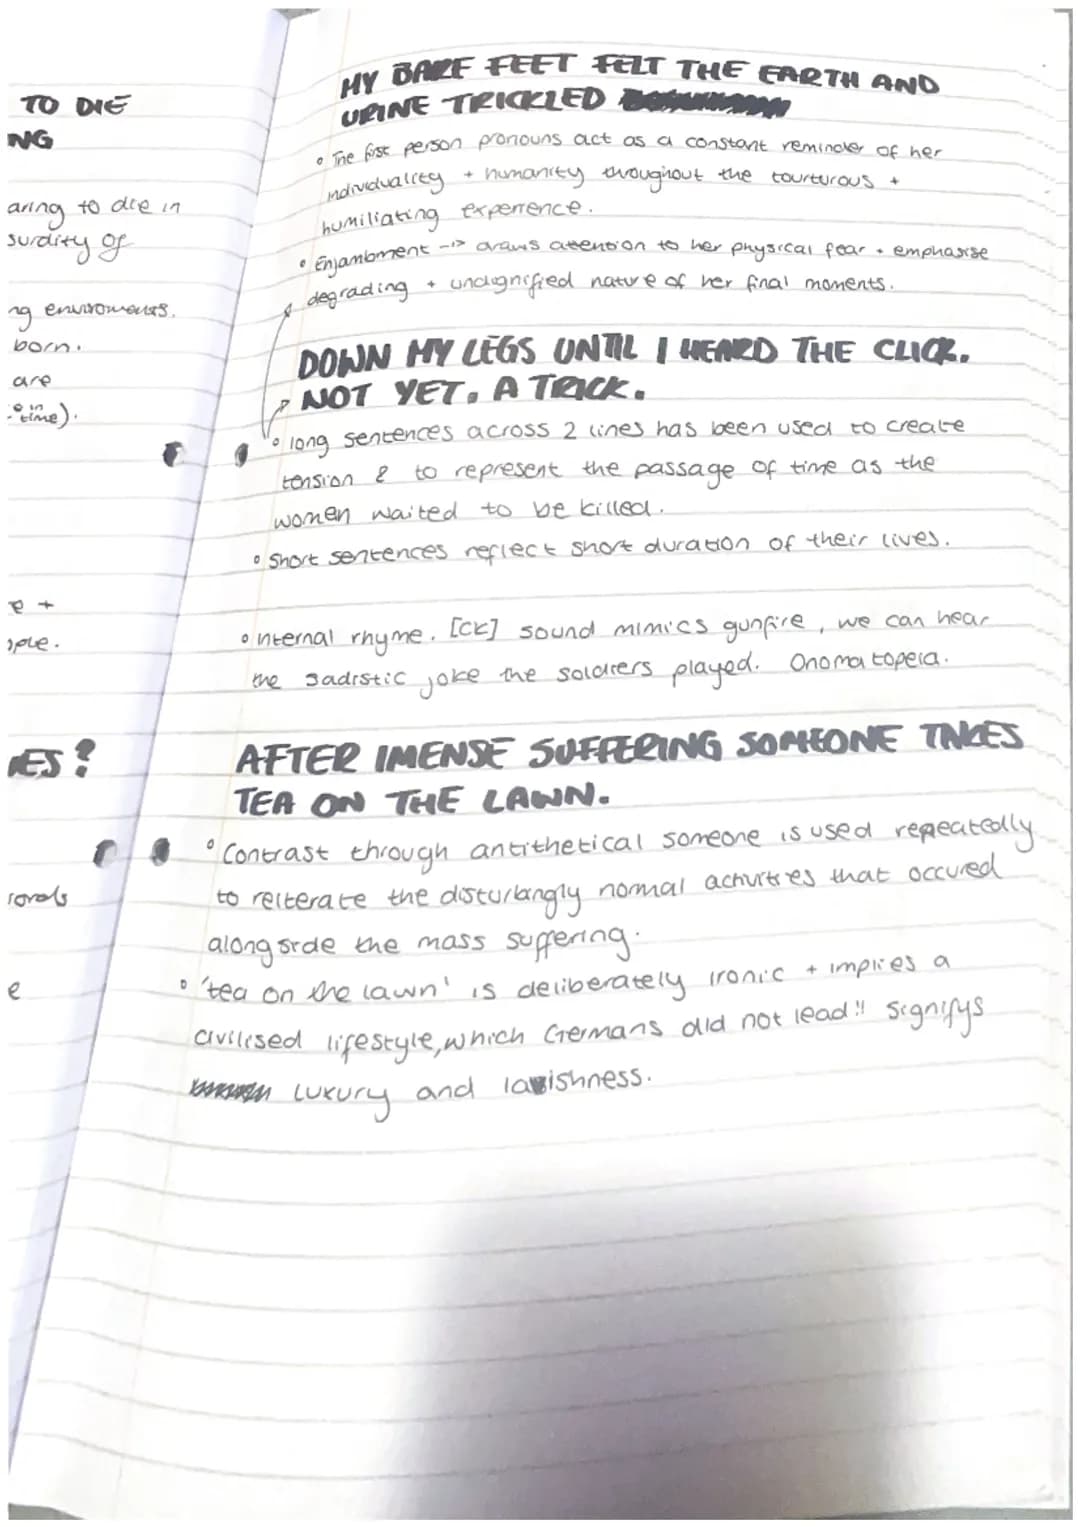 TO DIE
NG
aring to die in
surdity of
ng enviroments.
born.
are
in
time).
e +
ople.
ES?
e
MY BARE FEET FELT THE EARTH AND
URINE TRICKLED
• The first person pronouns act as a constant reminder of her
individuality + humanity throughout the tourturous +
humiliating experience.
• Enjambment --> draws attention to her physical fear + emphasise
degrading + undignified nature of her final moments.
DOWN MY LEGS UNTIL I HEARD THE CLICK.
NOT YET. A TRICK.
• long sentences across 2 lines has been used to create
tension & to represent the passage of time as the
women waited to be killed.
• Short sentences reflect short duration of their lives.
• internal rhyme. [CK] sound mimics gunfire, we can hear
the sadistic joke the soldiers played. Onomatopeia.
AFTER IMENSE SUFFERING SOMEONE TAKES
TEA ON THE LAWN.
• Contrast through antithetical someone is used repeatedly
to reiterate the disturbingly normal activities that occured
alongside the mass suffering.
• 'tea on the lawn' is deliberately ironic + implies a
civilised lifestyle, which Germans did not lead!! Signifys
luxury and lavishness.